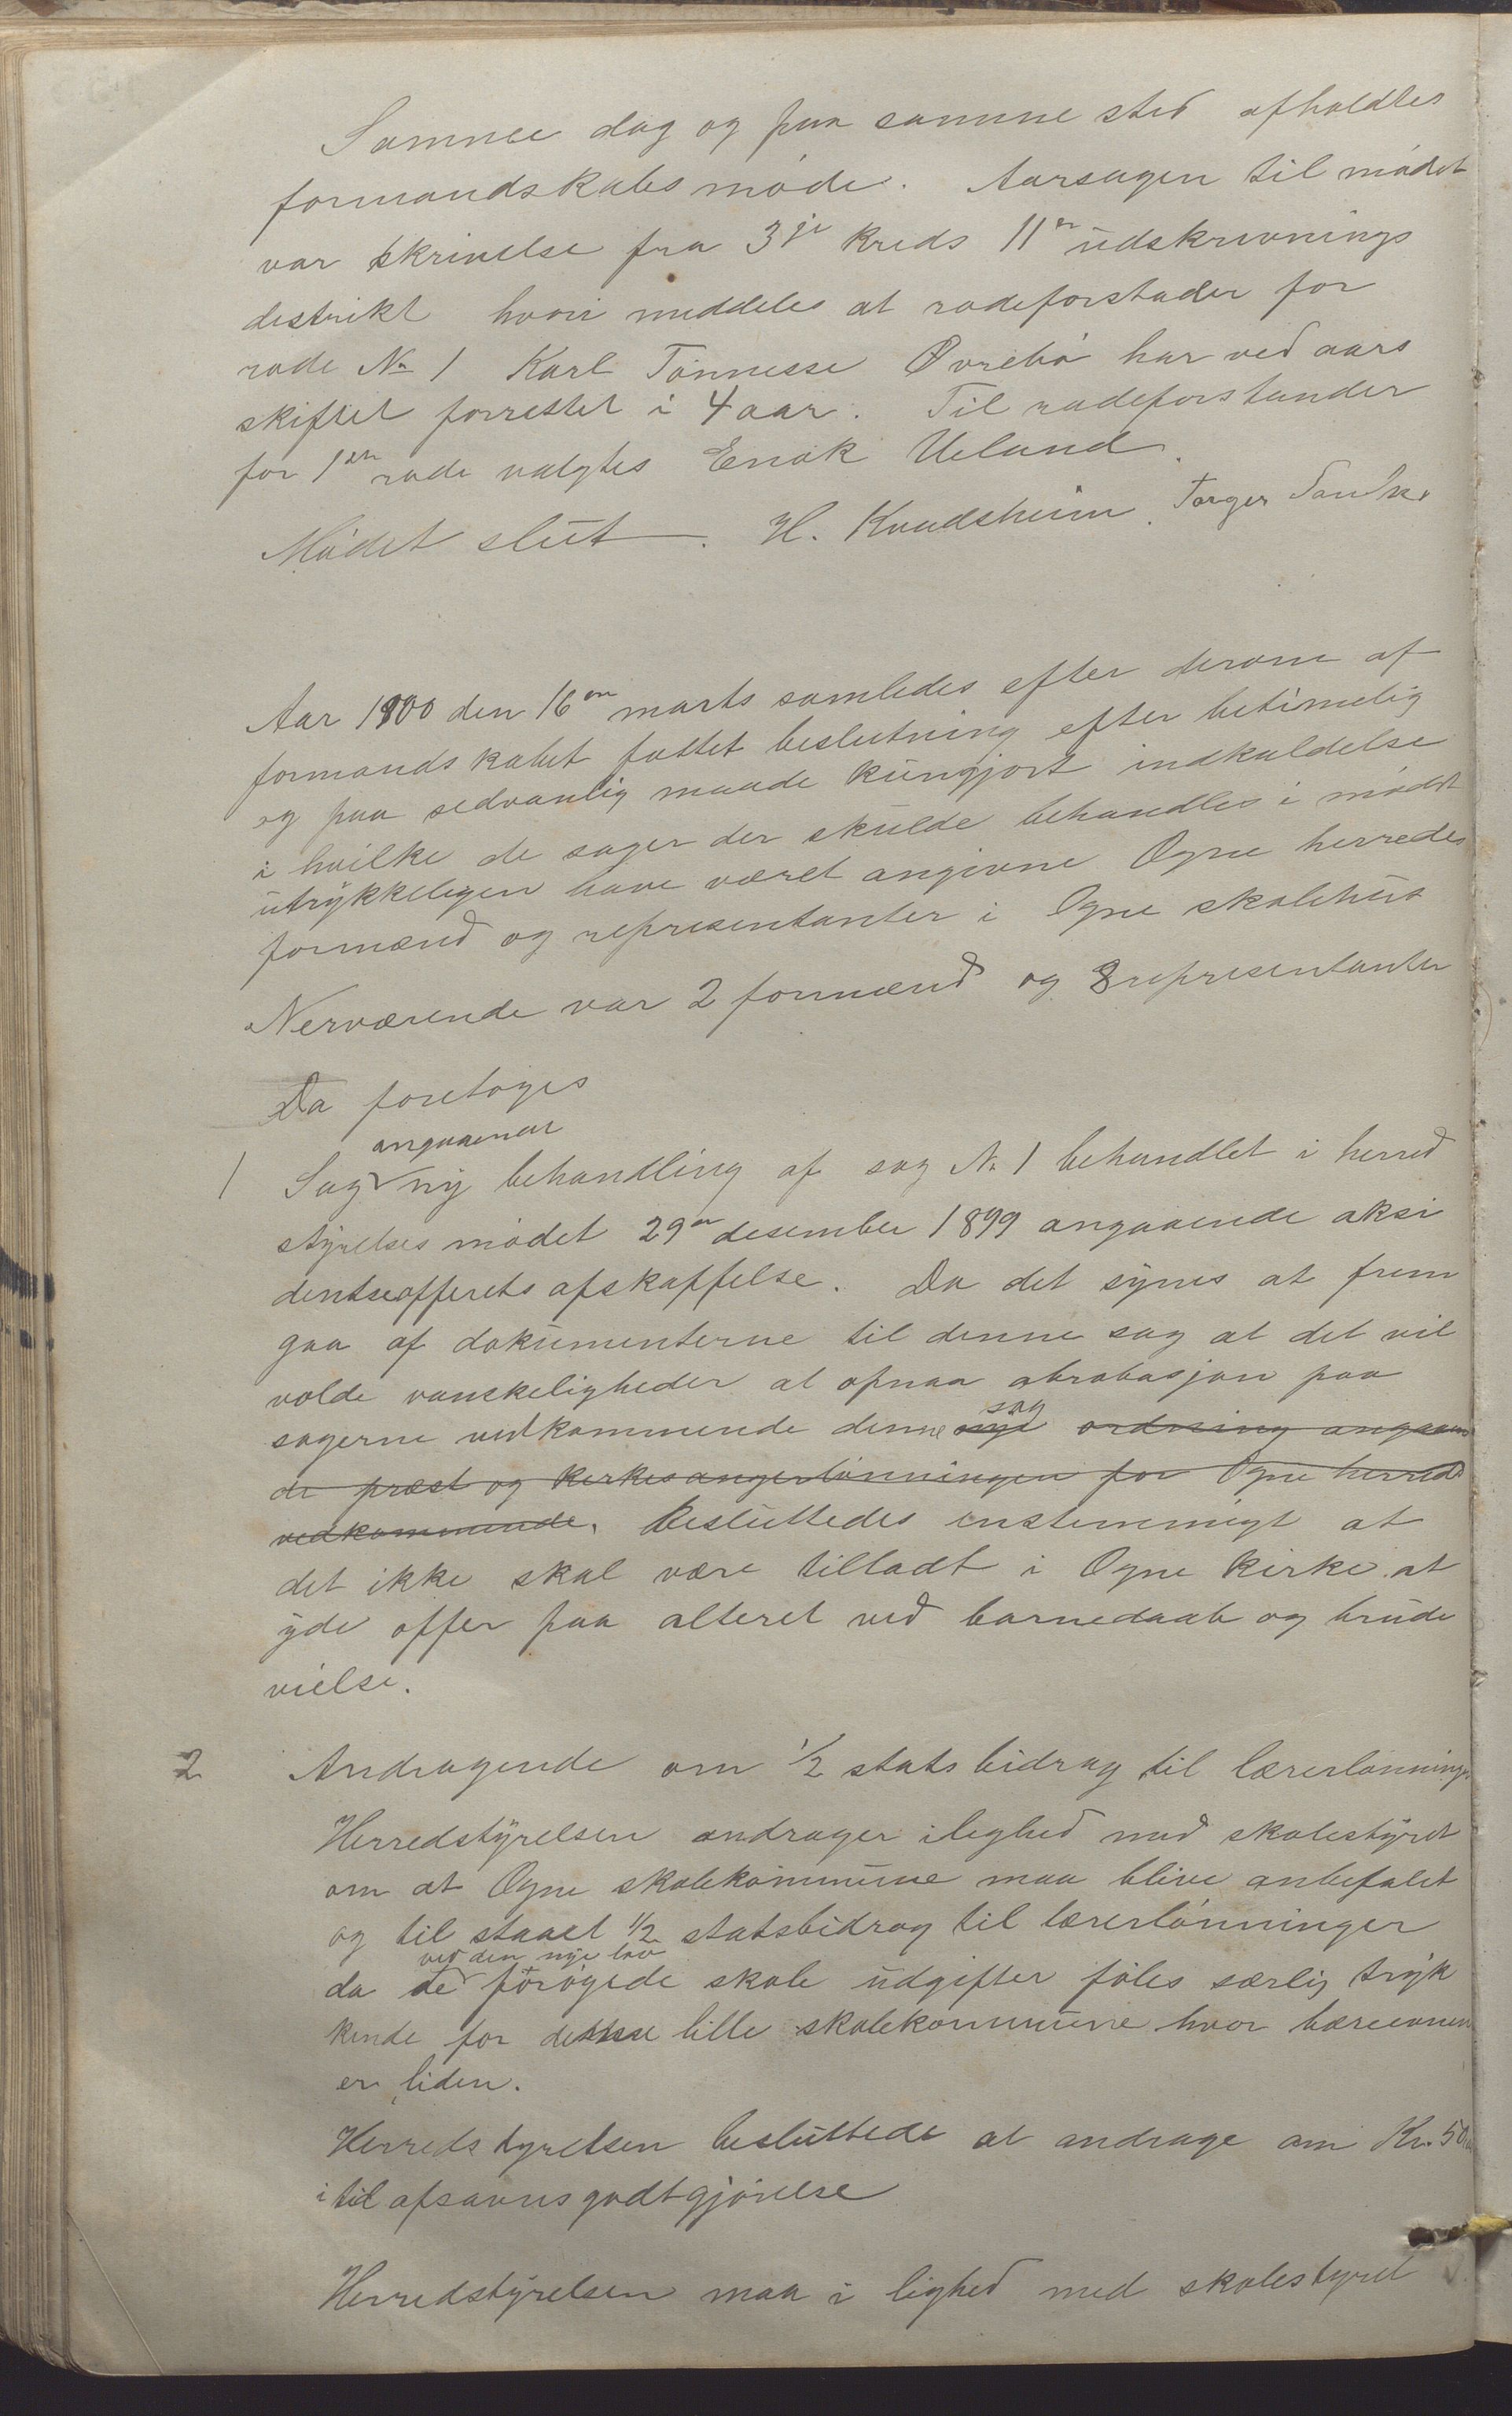 Samme dag og paa samme sted afholdtes
formandskabsmøde. Aarsagen til mødet
var skrivelse fra 3die Kreds 11te udskrivnings
destrikt hvori meddeles at rodeforstader for
rode No 1 Karl Tønnesse Øvrebø har ved aars
skiftet forrettet i 4 aar. Til rodeforstander
for 1ste rode valgtes Enok Ueland.
Mødet slut. H. Kvadsheim. Torger
Aar 1900 den 16en marts samledes efter derom af
formandskabet fattet beslutning efter betimelig
og paa sedvanlig maade kungjort indkaldelse
i hvilke de sager der skulde behandles i mødet
utrykkeligen have været angivne Ogne herreds
formænd og representanter i Ogne skolehus
Nerværende var 2 formænd og 8 representanter
Da foretoges
angaaende
1 Sag ny behandling af sag No 1 behandlet i herred
styrelses mødet 29en desember 1899 angaaende aksi
dentseofferets afskaffelse. Da det synes at frem
gaa af dokumenterne til denne sag at det vil
volde vanskeligheder at opnaa abrobasjon paa
sag
sagerne vedkommende denne nye ordning angaaen
de præst og kerkesangerlønningen for Ogne herred
vedkommende. Besluttedes enstemmigt at
det ikke skal være tilladt i Ogne Kirke at
yde offer paa alteret ved barnedaab og brude
vielse.
2 Andragende om 1/2 statsbidrag til lærerlønninger
Herredstyrelsen andrager ilighed med skolestyret
om at Ogne skolekommune maa blive anbefalet
og til staaet 1/2 statsbidrag til lærerlønninger
ved den nye lov
da de forøgede skole udgifter føles særlig tryk
kende for denne lille skolekommune hvor bæreevnen
er liden.
Herredstyrelsen besluttede at andrage om Kr. 50
i til afsavnsgodtgjørelse
Herredstyrelsen maa i lighed med skolestyret